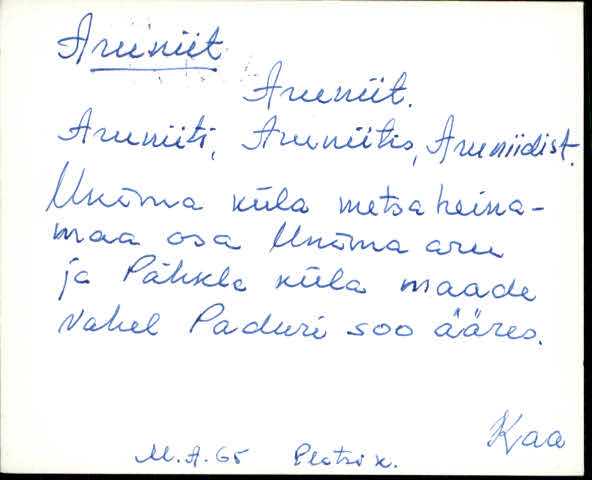 Aruniit
Aruniit.
Aruniiti, Aruniitis, Aruniidist.
Unõma küla metsa heina-
maa osa Unõma aru
ja Pähkla küla maade
vahel Paduri soo ääres.
Kaa
M.A.65 k.